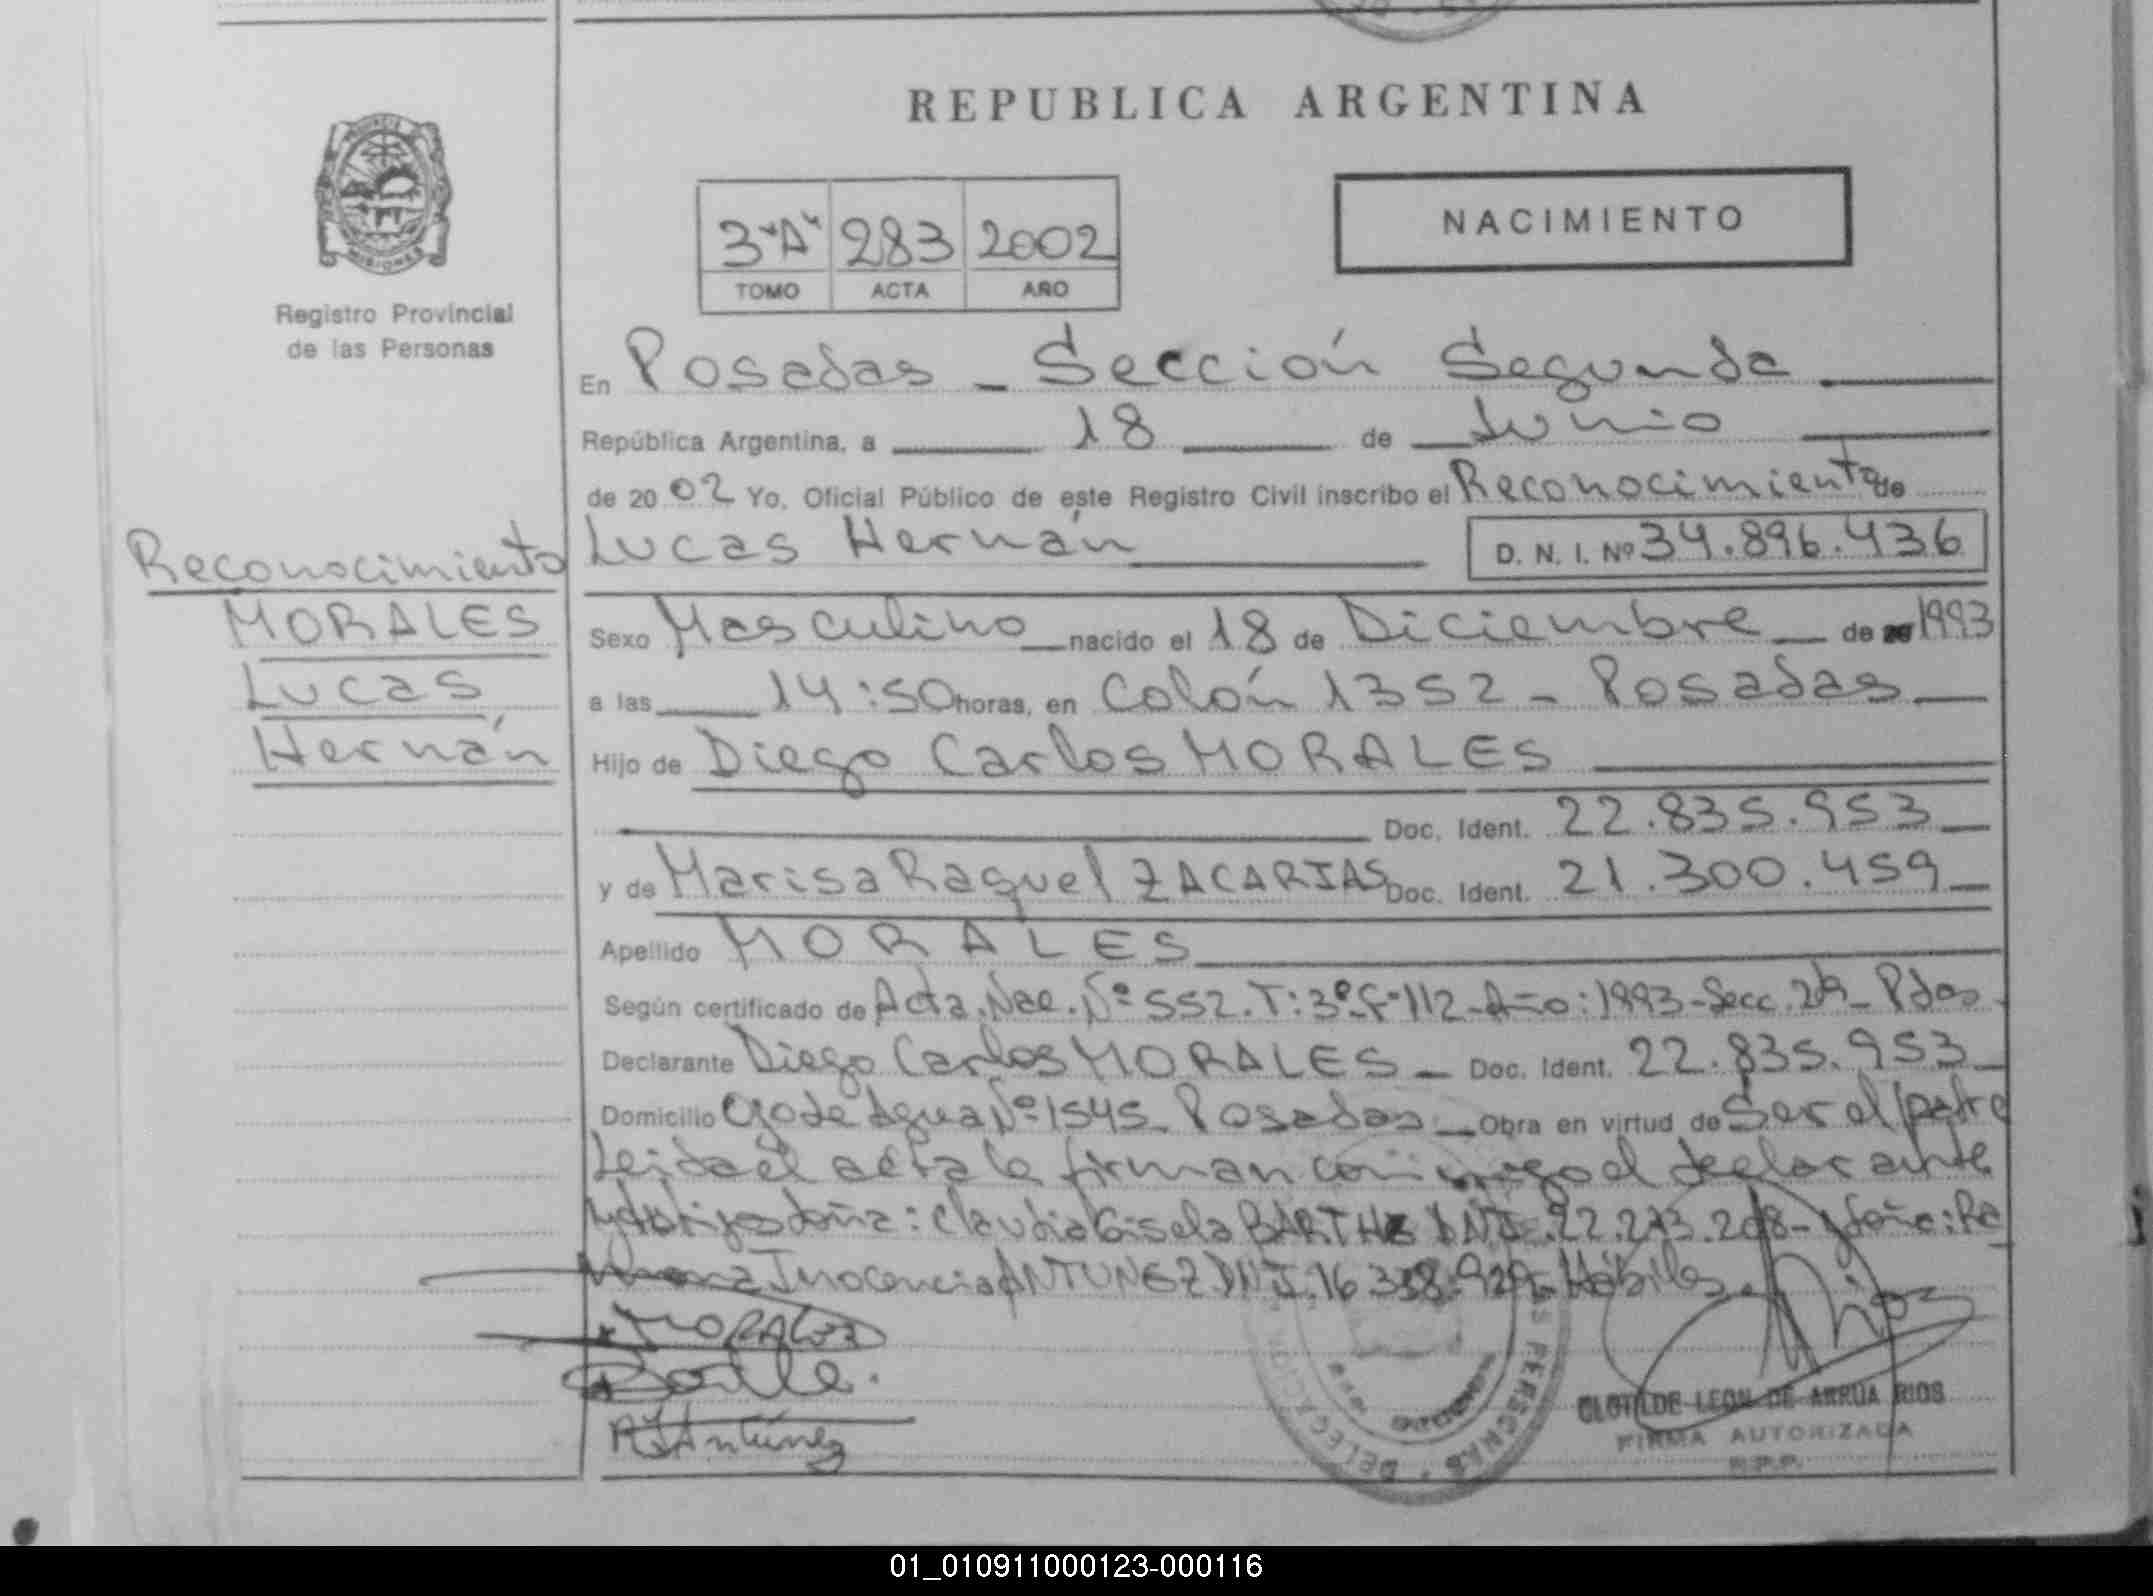 REPUBLICA ARGENTINA
Registro Provincial
de las Personas
3"A" 283 2002
TOMO ACTA AÑO
NACIMIENTO
En Posadas - Sección Segunda
República Argentina, a 18 de Junio
de 2002 Yo, Oficial Público de este Registro Civil inscribo el Reconocimiento de
Lucas Hernán D. N. I. Nº 34.896.436
Reconocimiento
MORALES
Lucas
Hernán
Sexo Masculino nacido el 18 de Diciembre de 1993
a las 14:50 horas, en Colón 1352 - Posadas
Hijo de Diego Carlos MORALES
Doc. Ident. 22.835.953
y de Marisa Raquel ZACARIAS Doc. Ident. 21.300.459
Apellido MORALES
Según certificado de Acta. Nac. Nº 552. T: 3º F: 112 - Año: 1993 - Secc. 2da - Pdas
Declarante Diego Carlos MORALES - Doc. Ident. 22.835.953
Domicilio Ojo de Agua Nº 1545 - Posadas - Obra en virtud de Ser el padre
Leida el acta la firman conmigo el declarante
y testigos doña: Claudia Gisela BARTHE DNI. 22.273.208 - y doña: Ra
mona Inocencia ANTUNEZ DNI. 16.338.929 - Hábiles
MORALES
R I Antúnez
CLOTILDE LEON DE ARRUA RIOS
FIRMA AUTORIZADA
R.P.P.
PERSONAS DELEGACION
01_010911000123-000116